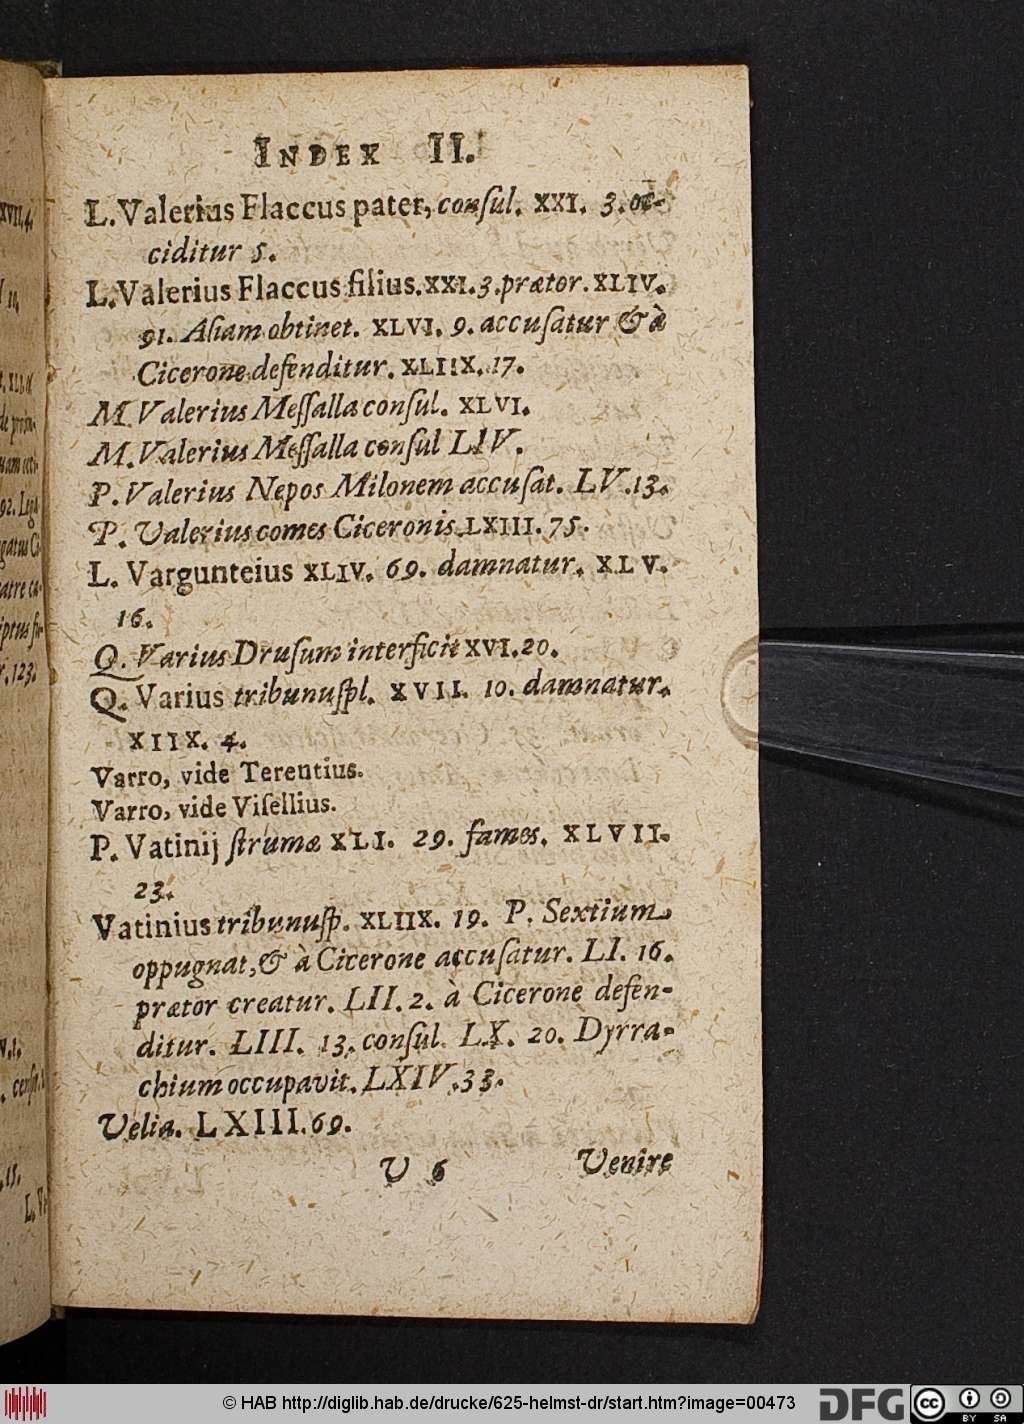 INDEX II.
L. Valerius Flaccus pater, conſul. XXI. 3. oc-
ciditur 5.
L. Valerius Flaccus filius. XXI. 3. prætor. XLIV.
91. Aſiam obtinet. XLVI. 9. accuſatur & à
Cicerone defenditur. XLIIX. 17.
M. Valerius Meſſalla conſul. XLVI.
M. Valerius Meſſalla conſul LIV.
P. Valerius Nepos Milonem accuſat. LV. 13.
P. Valerius comes Ciceronis. LXIII. 75.
L. Vargunteius XLIV. 69. damnatur. XLV.
16.
Q. Varius Druſum interficit XVI. 20.
Q. Varius tribunuſpl. XVII. 10. damnatur.
XIIX. 4.
Varro, vide Terentius.
Varro, vide Viſellius.
P. Vatinij ſtrumæ XLI. 29. fames. XLVII.
23.
Vatinius tribunuſp. XLIIX. 19. P. Sextium
oppugnat, & à Cicerone accuſatur. LI. 16.
prætor creatur. LII. 2. à Cicerone defen-
ditur. LIII. 13. conſul. LX. 20. Dyrra-
chium occupavit. LXIV. 33.
Velia. LXIII. 69.
V 6 Venire
© HAB http://diglib.hab.de/drucke/625-helmst-dr/start.htm?image=00473
DFG
cc BY SA